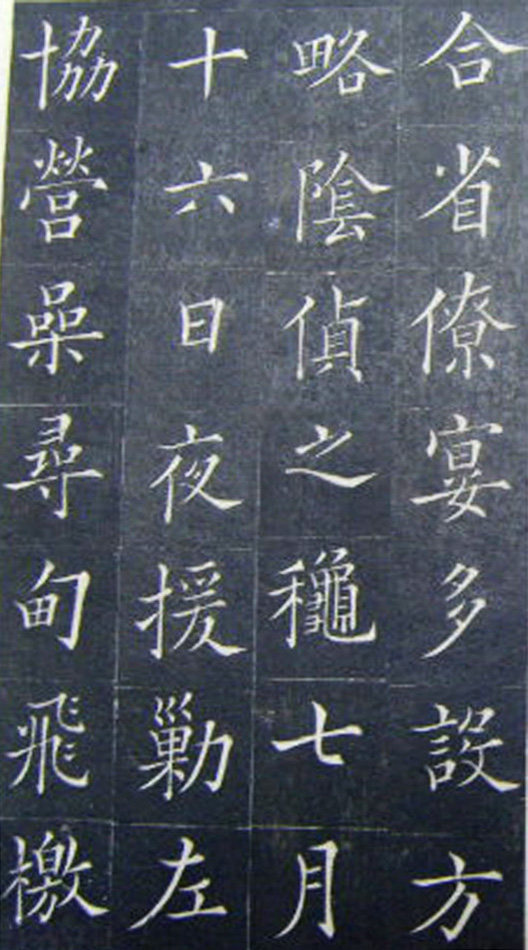 合省僚宴多設方
略陰偵之龝七月
十六日夜援勦左
協營喿尋甸飛檄